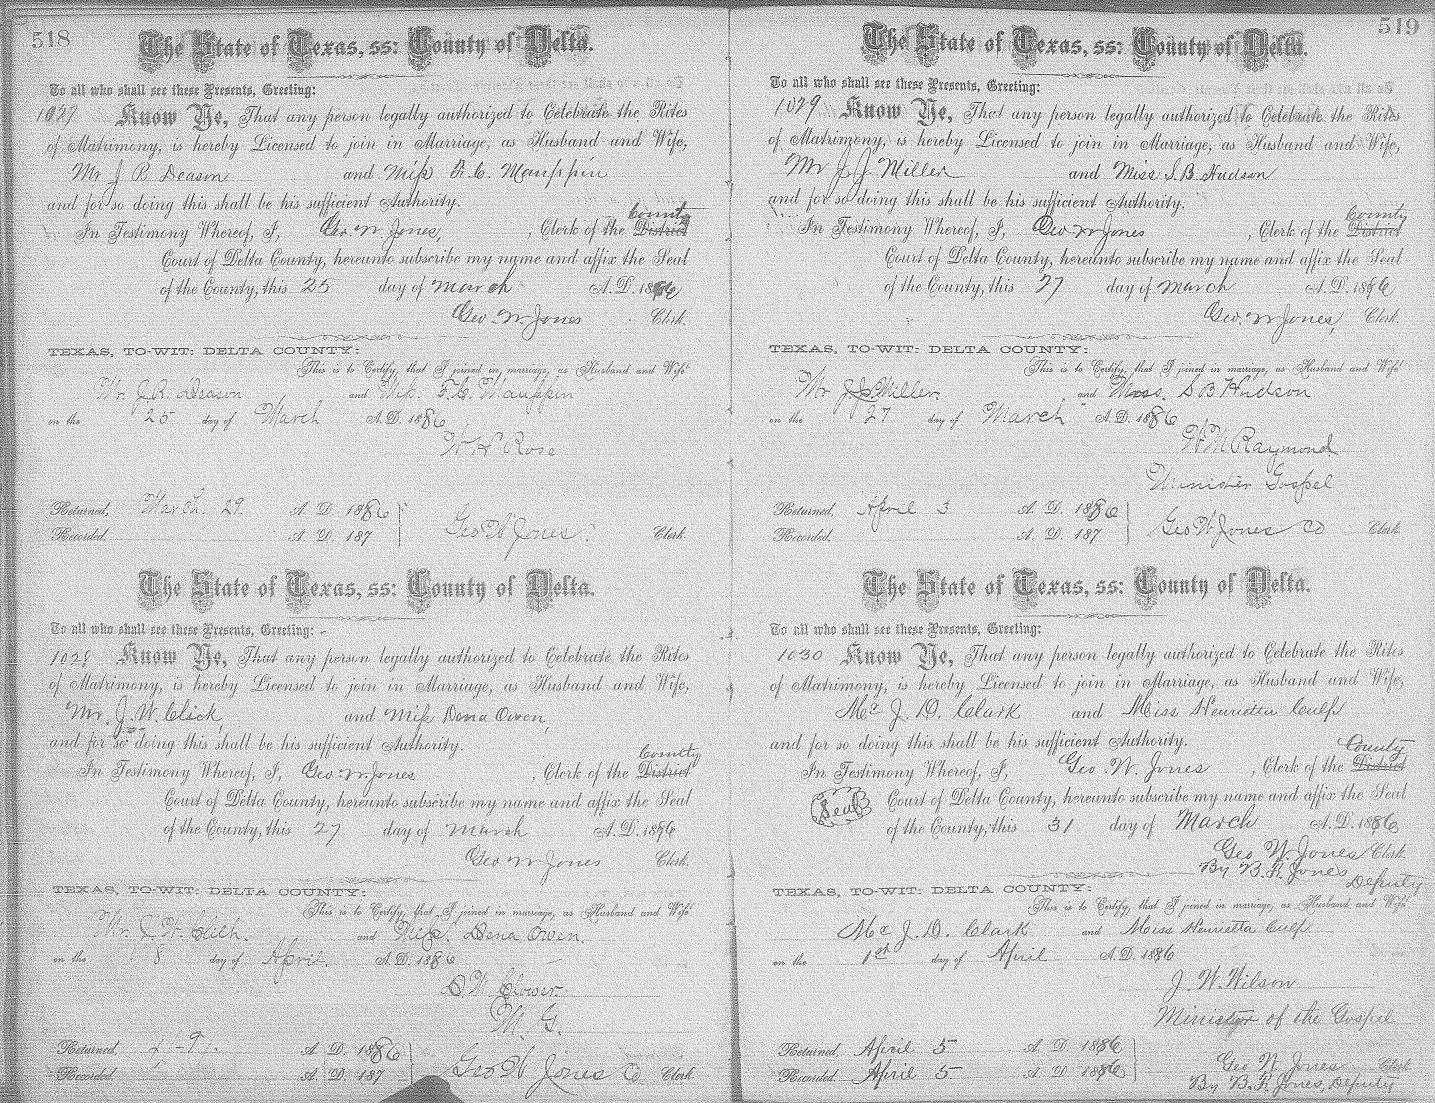 518
The State of Texas, ss: County of Delta.
To all who shall see these Presents, Greeting:
1027 Know Ye, That any person legally authorized to Celebrate the Rites
of Matrimony, is hereby Licensed to join in Marriage, as Husband and Wife,
Mr J R Deason and Miss F. C. Mauppin
and for so doing this shall be his sufficient Authority.
County
In Testimony Whereof, I, Geo W Jones, Clerk of the District
Court of Delta County, hereunto subscribe my name and affix the Seal
of the County, this 25 day of March A. D. 1886
Geo. W. Jones Clerk.
TEXAS, TO-WIT: DELTA COUNTY:
This is to Certify, that I joined in marriage, as Husband and Wife
Mr. J. R. Deason and Miss. F. C. Mauppin
on the 25 day of March A. D. 1886
W H Rose
Returned, March. 29. A. D. 1886
Recorded. A. D. 187 Geo W Jones Clerk
The State of Texas, ss: County of Delta.
To all who shall see these Presents, Greeting:
1028 Know Ye, That any person legally authorized to Celebrate the Rites
of Matrimony, is hereby Licensed to join in Marriage, as Husband and Wife,
Mr. J. W. Click and Miss Dena Owen,
and for so doing this shall be his sufficient Authority.
County
In Testimony Whereof, I, Geo W Jones, Clerk of the District
Court of Delta County, hereunto subscribe my name and affix the Seal
of the County, this 27 day of March A. D. 1886
Geo W Jones Clerk.
TEXAS, TO-WIT: DELTA COUNTY:
This is to Certify, that I joined in marriage, as Husband and Wife
Mr. J. W. Click. and Miss. Dena Owen.
on the 8 day of April. A. D. 1886
D. W. Clower.
M. G.
Returned, 4 - 9 A. D. 1886
Recorded. A. D. 187 Geo W Jones Co Clerk
519
The State of Texas, ss: County of Delta.
To all who shall see these Presents, Greeting:
1029 Know Ye, That any person legally authorized to Celebrate the Rites
of Matrimony, is hereby Licensed to join in Marriage, as Husband and Wife,
Mr J. J. Miller and Miss S. B. Hudson
and for so doing this shall be his sufficient Authority.
County
In Testimony Whereof, I, Geo W Jones, Clerk of the District
Court of Delta County, hereunto subscribe my name and affix the Seal
of the County, this 27 day of March A. D. 1886
Geo. W Jones, Clerk.
TEXAS, TO-WIT: DELTA COUNTY:
This is to Certify, that I joined in marriage, as Husband and Wife
Mr J J Miller. and Miss. S B Hudson
on the 27 day of March A. D. 1886
W. M. Raymond
Minister Gospel
Returned, April 3 A. D. 1886
Recorded. A. D. 187 Geo W Jones Co Clerk
The State of Texas, ss: County of Delta.
To all who shall see these Presents, Greeting:
1030 Know Ye, That any person legally authorized to Celebrate the Rites
of Matrimony, is hereby Licensed to join in Marriage, as Husband and Wife,
Mr J. D. Clark and Miss Henrietta Culp
and for so doing this shall be his sufficient Authority.
County
In Testimony Whereof, I, Geo W. Jones, Clerk of the District
Seal Court of Delta County, hereunto subscribe my name and affix the Seal
of the County, this 31 day of March A. D. 1886
Geo W. Jones Clerk.
By B. F. Jones Deputy
TEXAS, TO-WIT: DELTA COUNTY:
This is to Certify, that I joined in marriage, as Husband and Wife
Mr J. D. Clark and Miss Henrietta Culp
on the 1st day of April A. D. 1886
J. W. Wilson
Minister of the Gospel
Returned, April 5 A. D. 1886
Recorded. April 5 A. D. 1886 Geo W. Jones Clerk
By B. F. Jones, Deputy